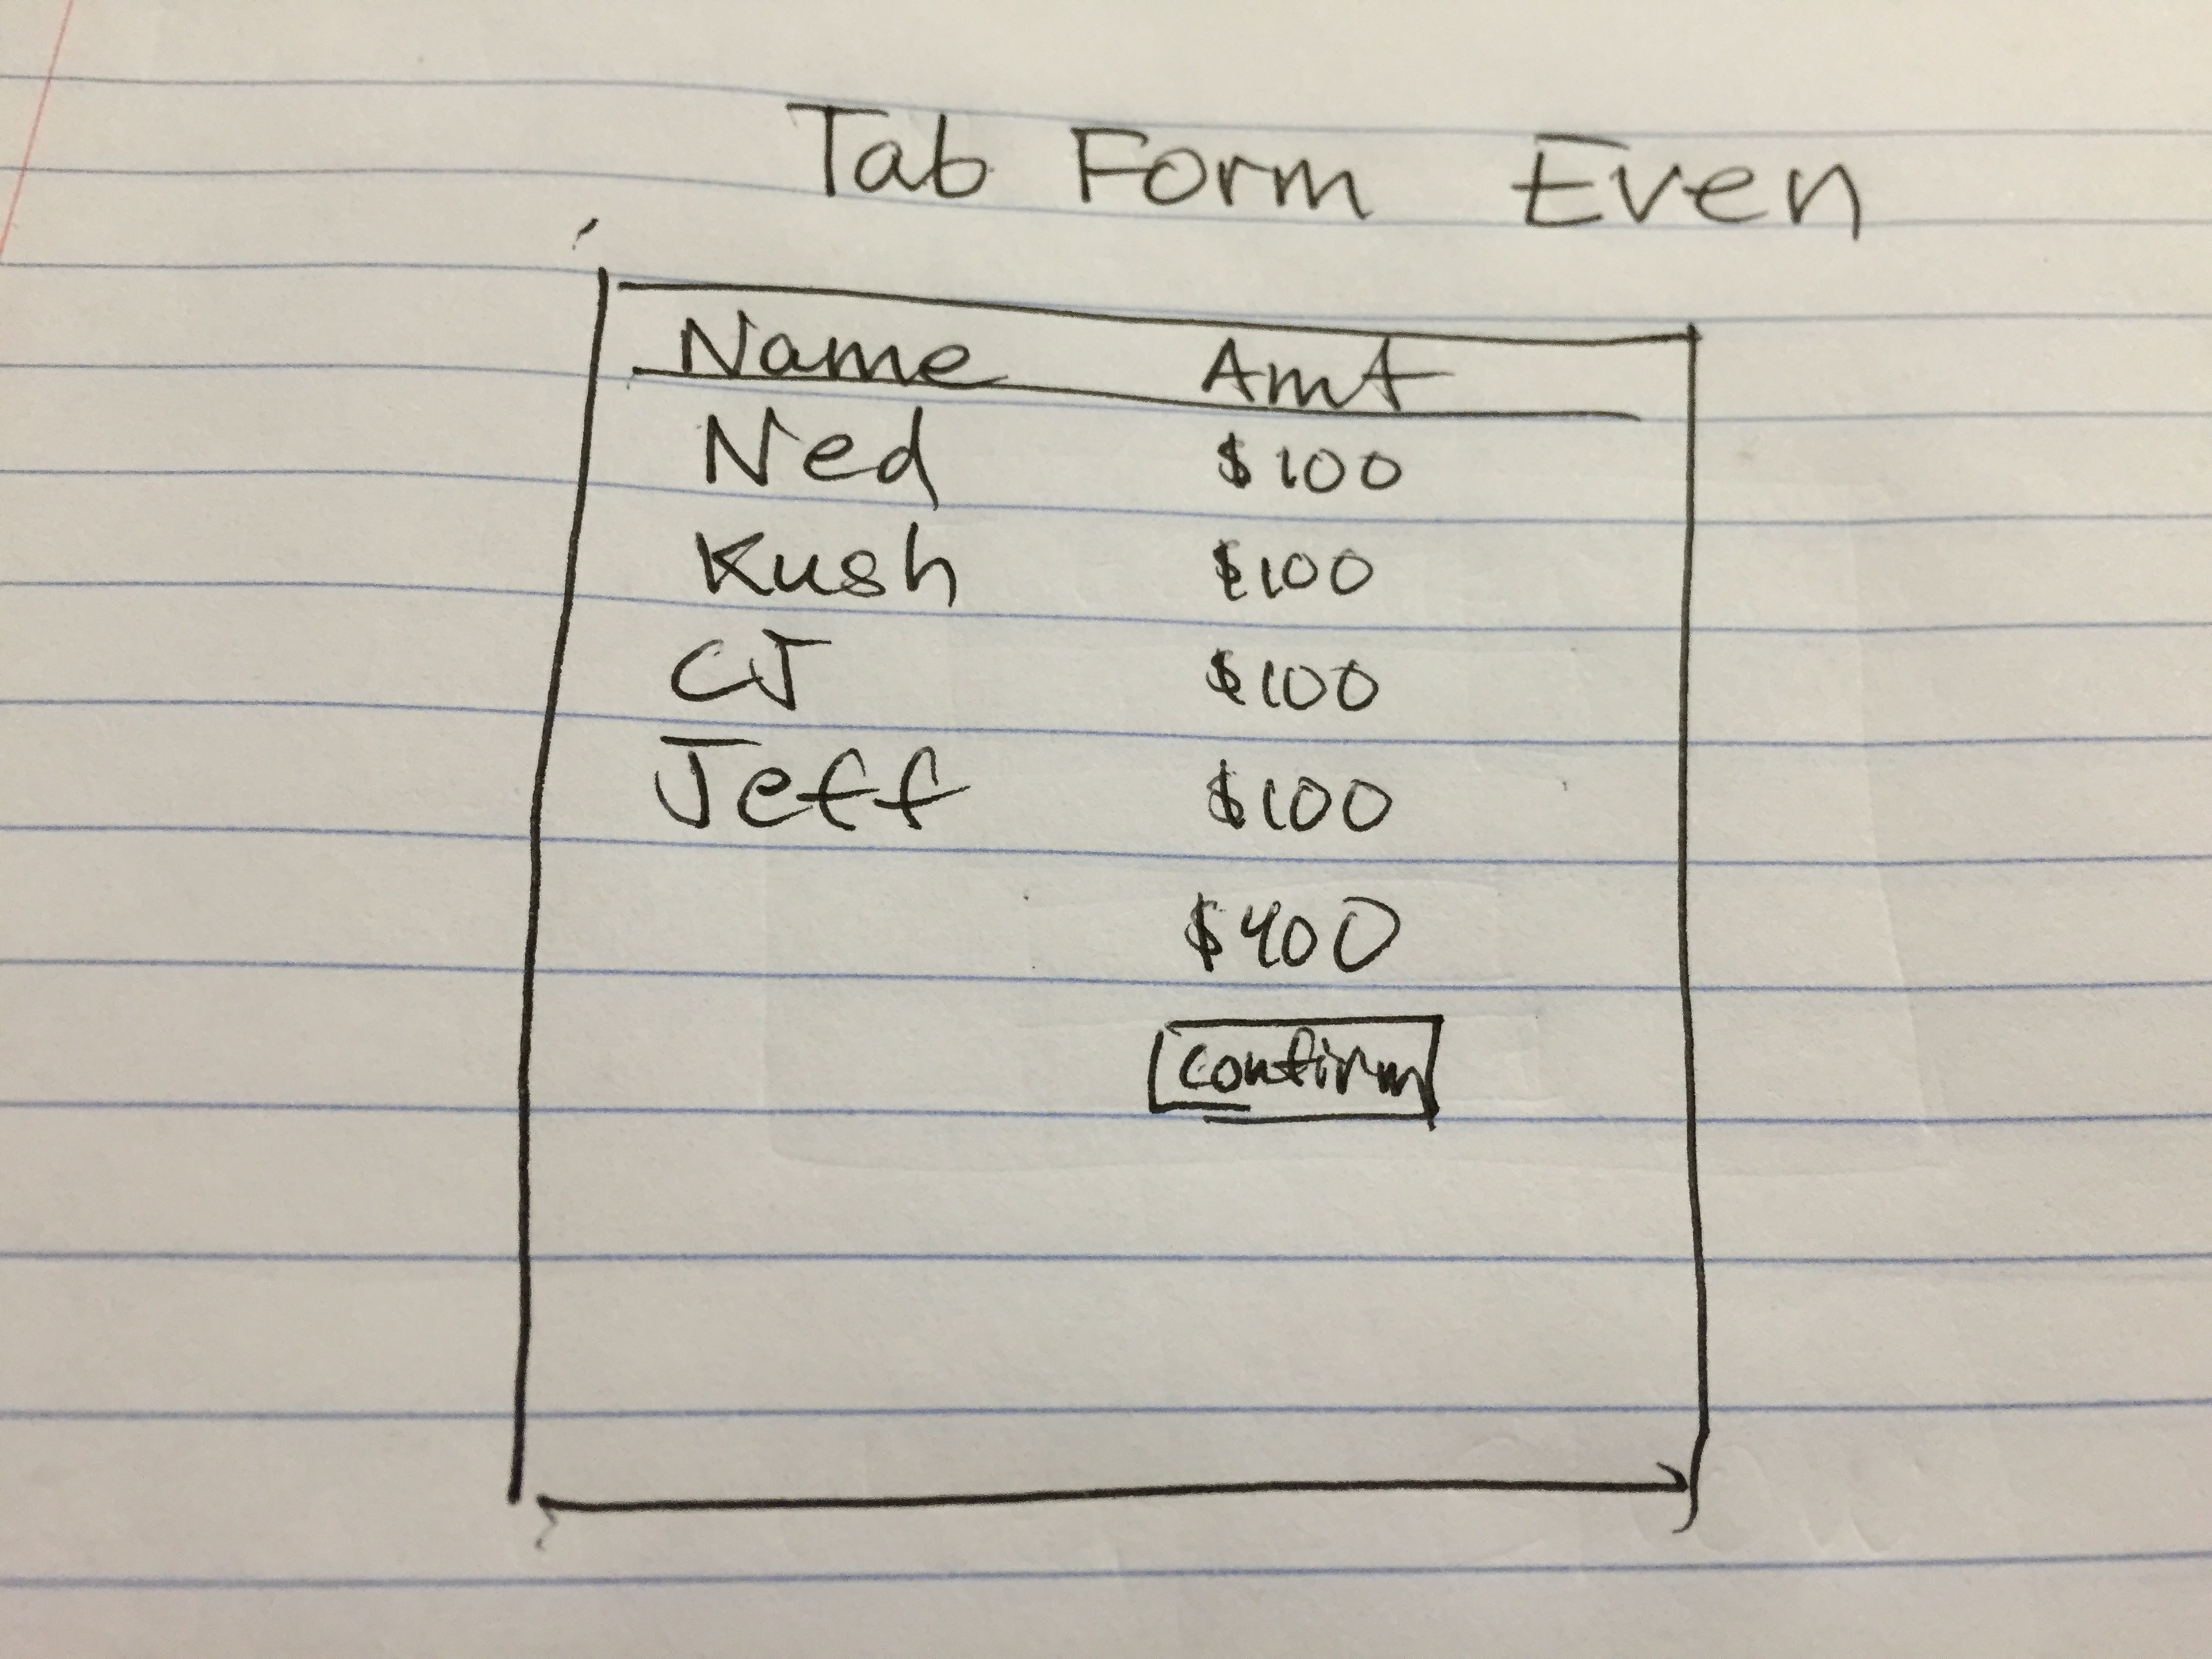 Tab Form Even
Name Amt
Ned $100
Kush $100
CJ $100
Jeff $100
$400
confirm